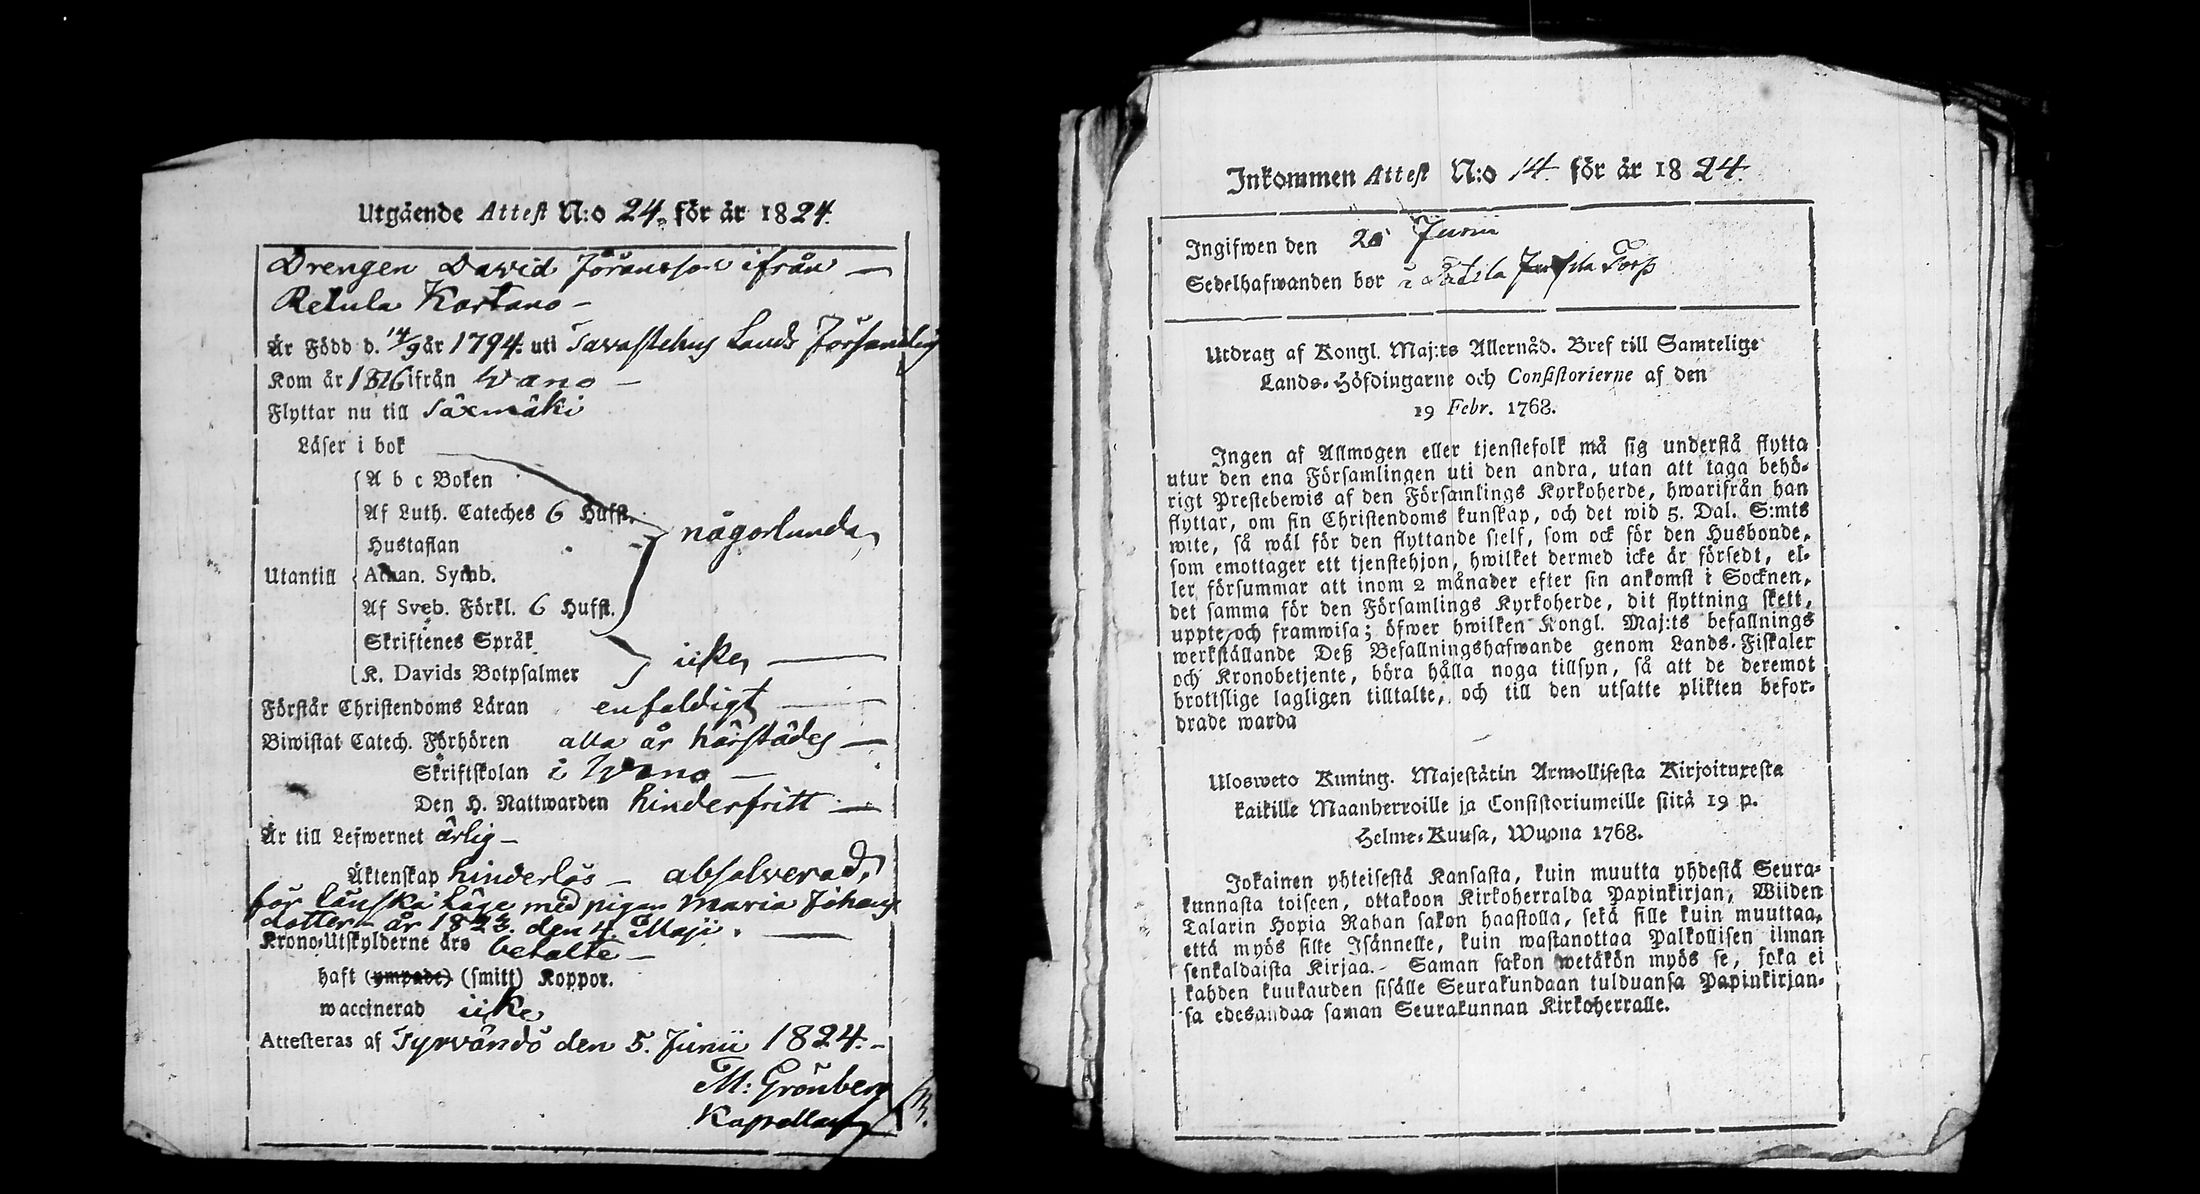 Utgående Attest N:o 24. för år 1824.
Drengen David Jöransson ifrån
Retula Kartano
Är Född d. 14/9 år 1794. uti Tavastehus Lands Församling
Kom år 1816 ifrån Wano
Flyttar nu till Säxmäki
Läser i bok
A b c Boken
Af Luth. Cateches 6 Hufst.
någorlunda
Hustaflan
Utantill Athan. Symb.
Af Sveb. Förkl. 6 Hufst.
Skriftenes Språk
icke
K. Davids Botpsalmer
Förstår Christendoms Läran enfaldigt
Biwistat Catech. Förhören alla år härstädes
Skriftskolan i Wano
Den H. Nattwarden hinderfritt
Är till Lefwernet ärlig
Äktenskap hinderlös absolverad,
för länska läge med pigan Maria Johans
dotter år 1823. den 4. Maji.
Krono-Utskylderne äro betalte
haft (ympade) (smitt) Koppor.
waccinerad icke
Attesteras af Tyrvändö den 5. Junii 1824.
M: Grönberg
Kapellan
Inkommen Attest N:o 14. för år 1824.
Ingifwen den Junii
Sedelhafwanden bor i Torp
Utdrag af Kongl. Maj:ts Allernåd. Bref till Samtelige
Lands-Höfdingarne och Consistorierne af den
19 Febr. 1768.
Ingen af Allmogen eller tjenstefolk må sig understå flytta
utur den ena Församlingen uti den andra, utan att taga behö-
rigt Prestebewis af den Församlings Kyrkoherde, hwarifrån han
flyttar, om sin Christendoms kunskap, och det wid 5. Dal. S:mts
wite, så wäl för den flyttande sielf, som ock för den Husbonde,
som emottager ett tjenstehjon, hwilket dermed icke är försedt, el-
ler försummar att inom 2 månader efter sin ankomst i Socknen,
det samma för den Församlings Kyrkoherde, dit flyttning skett,
uppte och framwisa; öfwer hwilken Kongl. Maj:ts befallnings
werkställande Deß Befallningshafwande genom Lands-Fiskaler
och Kronobetjente, böra hålla noga tillsyn, så att de deremot
brottslige lagligen tilltalte, och till den utsatte plikten befor-
drade warda
Ulosweto Kuning. Majestätin Armollisesta Kirjoituxesta
kaikille Maanherroille ja Consistoriumeille siitä 19 p.
Helme-Kuusa, Wuona 1768.
Jokainen yhteisestä Kansasta, kuin muutta yhdestä Seura-
kunnasta toiseen, ottakoon Kirkoherralda Papinkirjan, Wiiden
Talarin Hopia Rahan sakon haastolla, sekä sille kuin muuttaa,
että myös sille Isännelle, kuin wastanottaa Palkollisen ilman
senkaldaista Kirjaa. Saman sakon wetäkön myös se, joka ei
kahden kuukauden sisälle Seurakundaan tulduansa Papinkirjan-
sa edesandaa saman Seurakunnan Kirkoherralle.